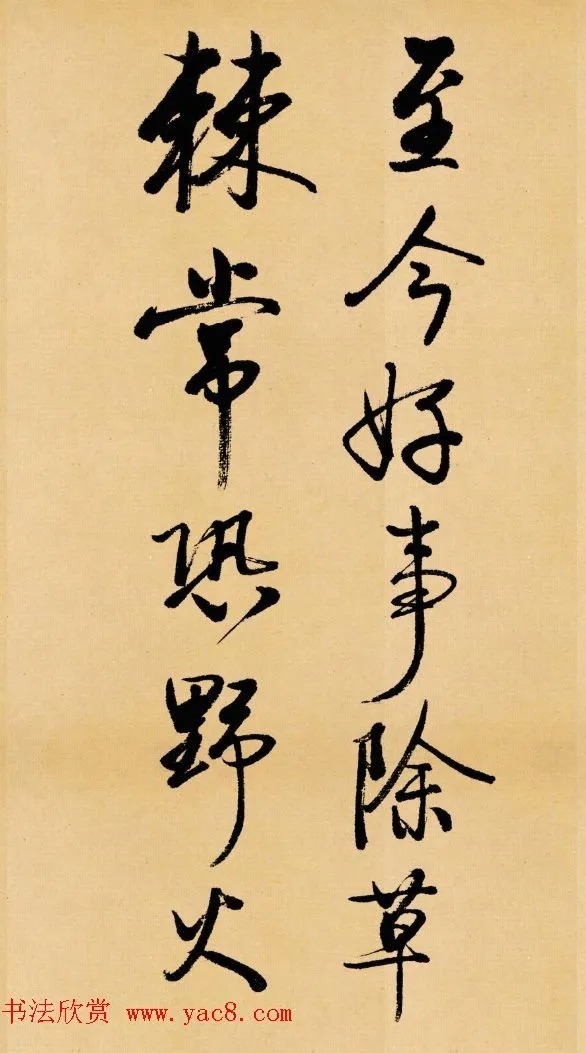 至今好事除草
棘常恐野火
书法欣赏 www.yac8.com